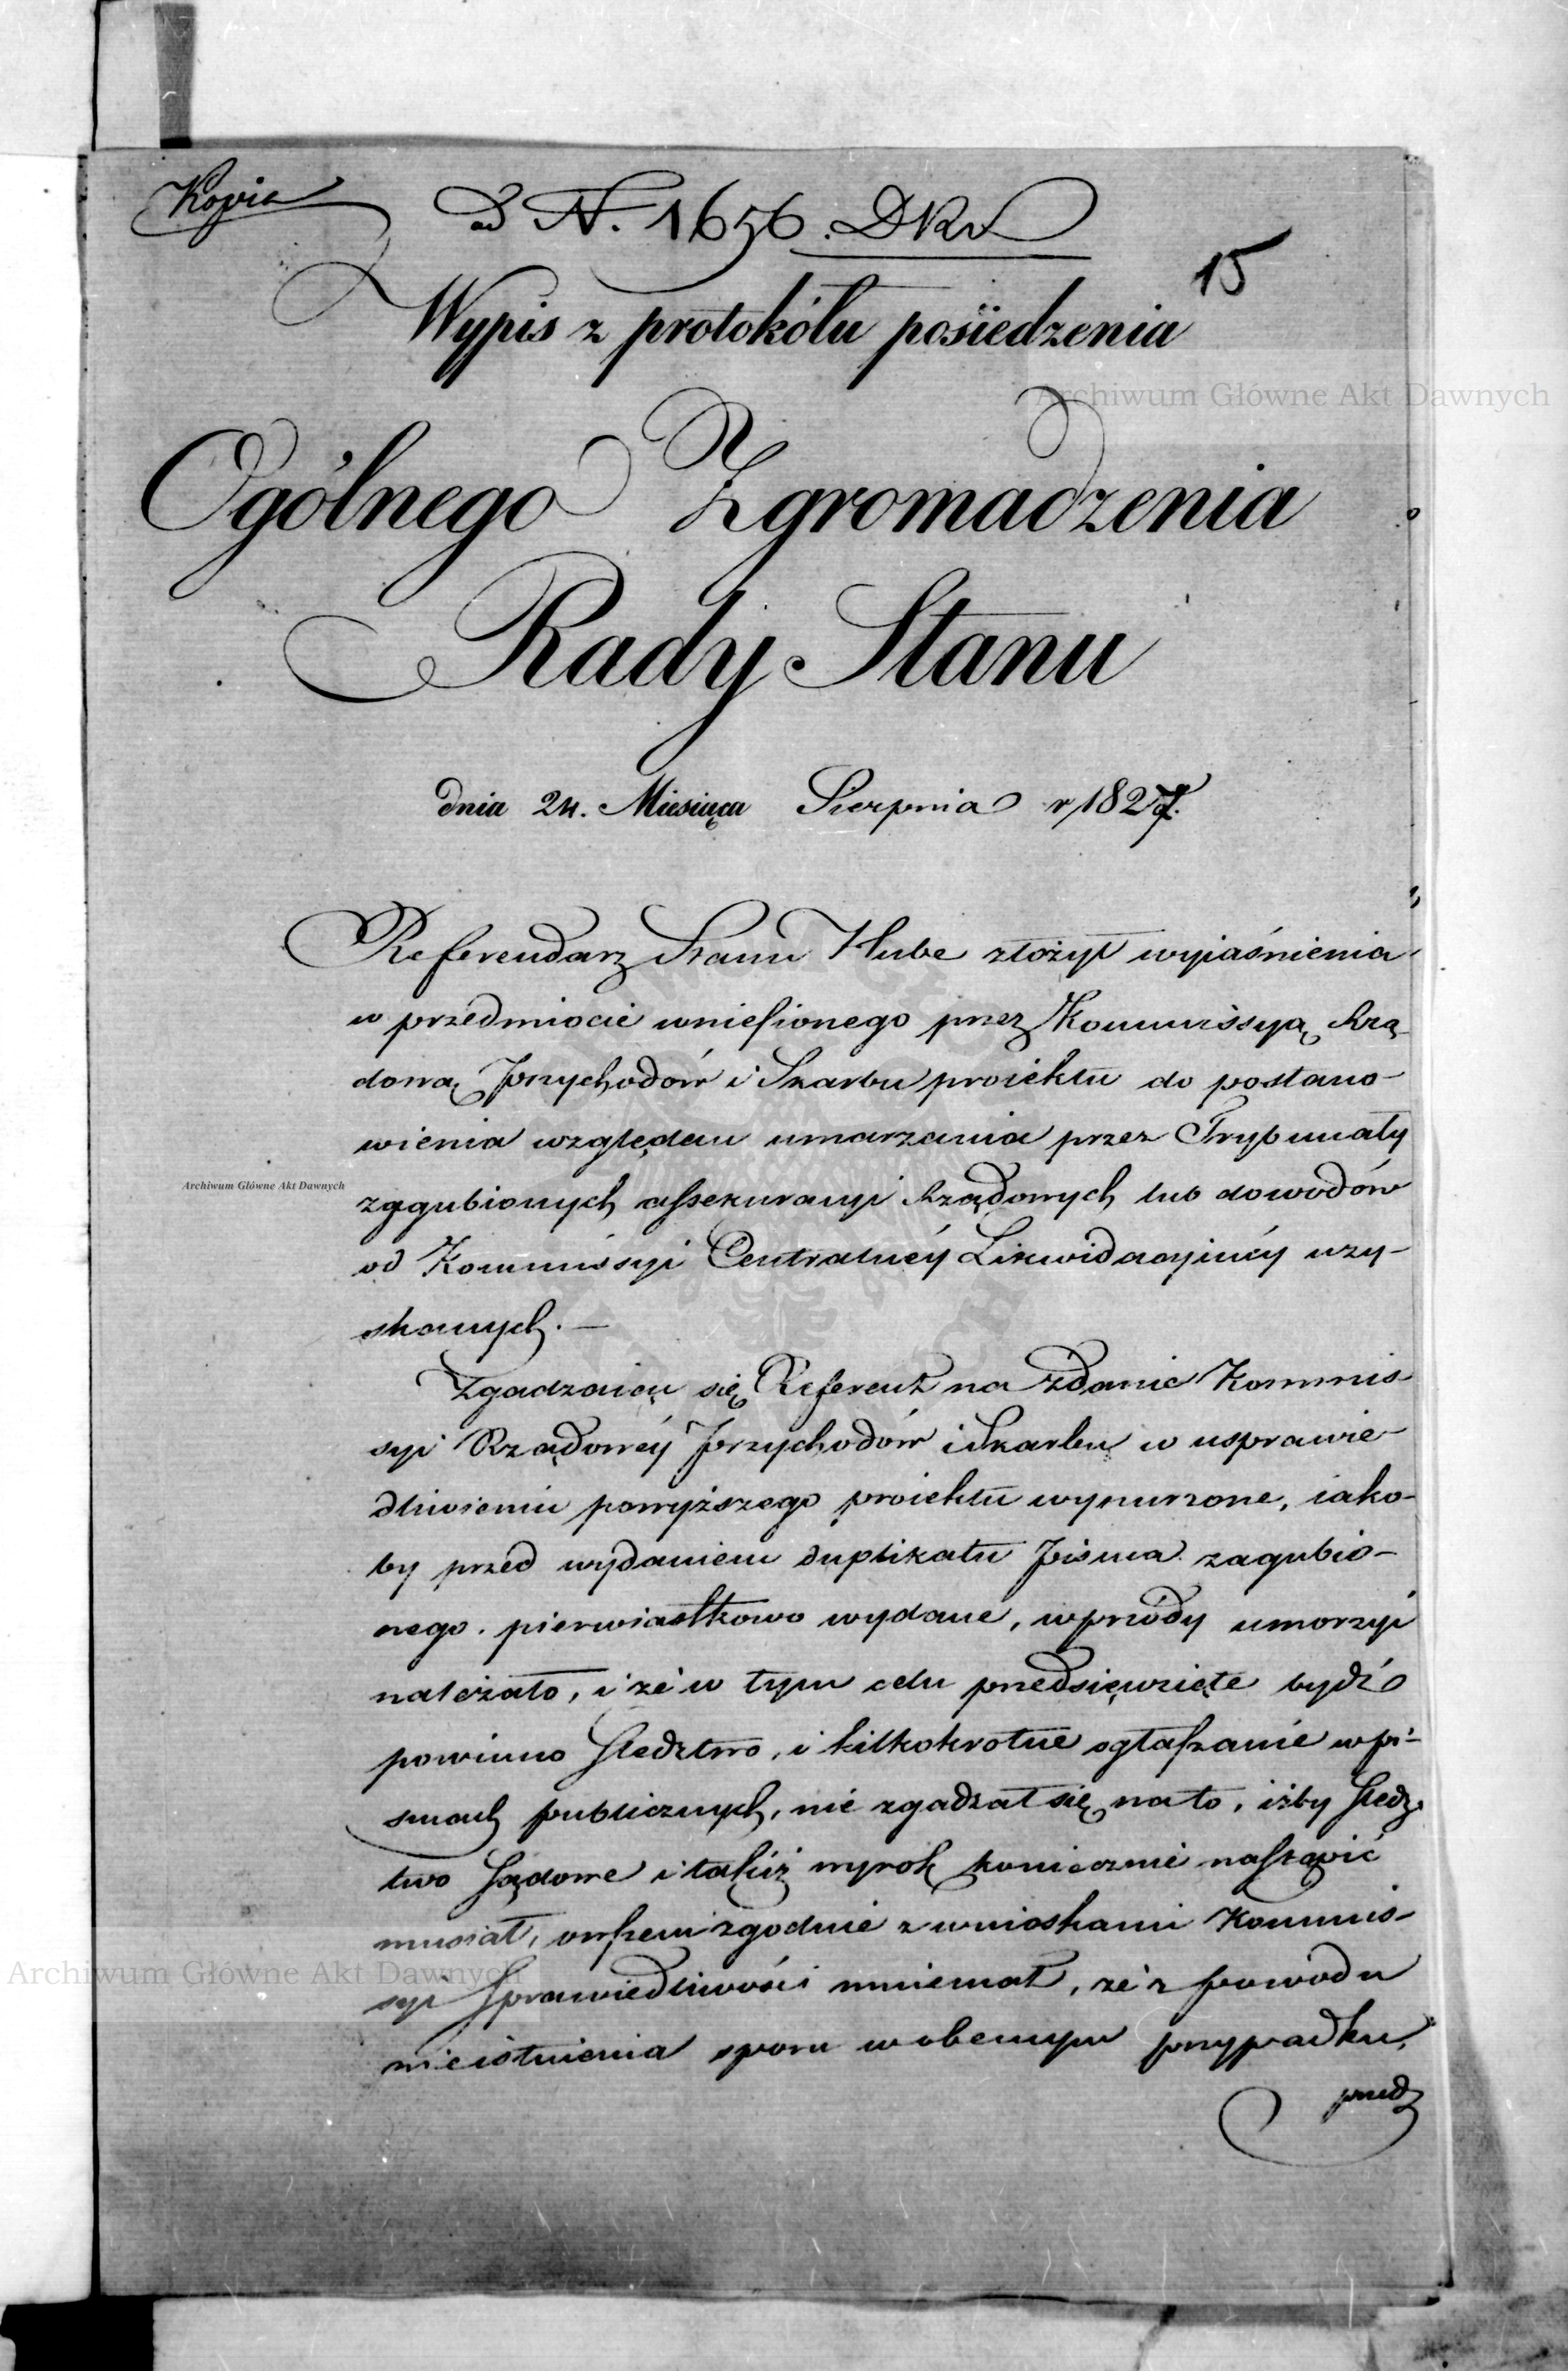 Kopia
ad N. 1656. DRS
15
Wypis z protokółu posiedzenia
Archiwum Główne Akt Dawnych
Ogólnego Zgromadzenia
Rady Stanu
dnia 24. Miesiąca Sierpnia r 1827.
Referendarz Stanu Hube złożył wyiaśnienia
w przedmiocie wniesionego przez Kommissyą Rzą-
dową Przychodów i Skarbu proiektu do postano-
wienia względem umarzania przez Trybunały
Archiwum Główne Akt Dawnych
zagubionych assekuracyi Rządowych lub dowodów
od Kommissyi Centralnéy Likwidacyinéy uzy-
skanych. —
Zgadzaiąc się Referent na zdanie Kommis-
syi Rządowéy Przychodów i Skarbu w usprawie-
dliwieniu powyższego proiektu wynurzone, iako-
by przed wydaniem duplikatu Pisma zagubio-
nego. pierwiastkowo wydane, wprzódy umorzyć
należało, i że w tym celu przedsięwzięte bydź
powinno śledztwo, i kilkokrotne ogłaszanie w pi-
smach publicznych, nie zgadzał się na to, iżby śledz-
two sądowe i takiż wyrok koniecznie nastąpić
musiał, owszem zgodnie z wnioskami Kommis-
Archiwum Główne Akt Dawnych
syi Sprawiedliwości mniemał, że z powodu
nieistnienia sporu w obecnym przypadku,
przed